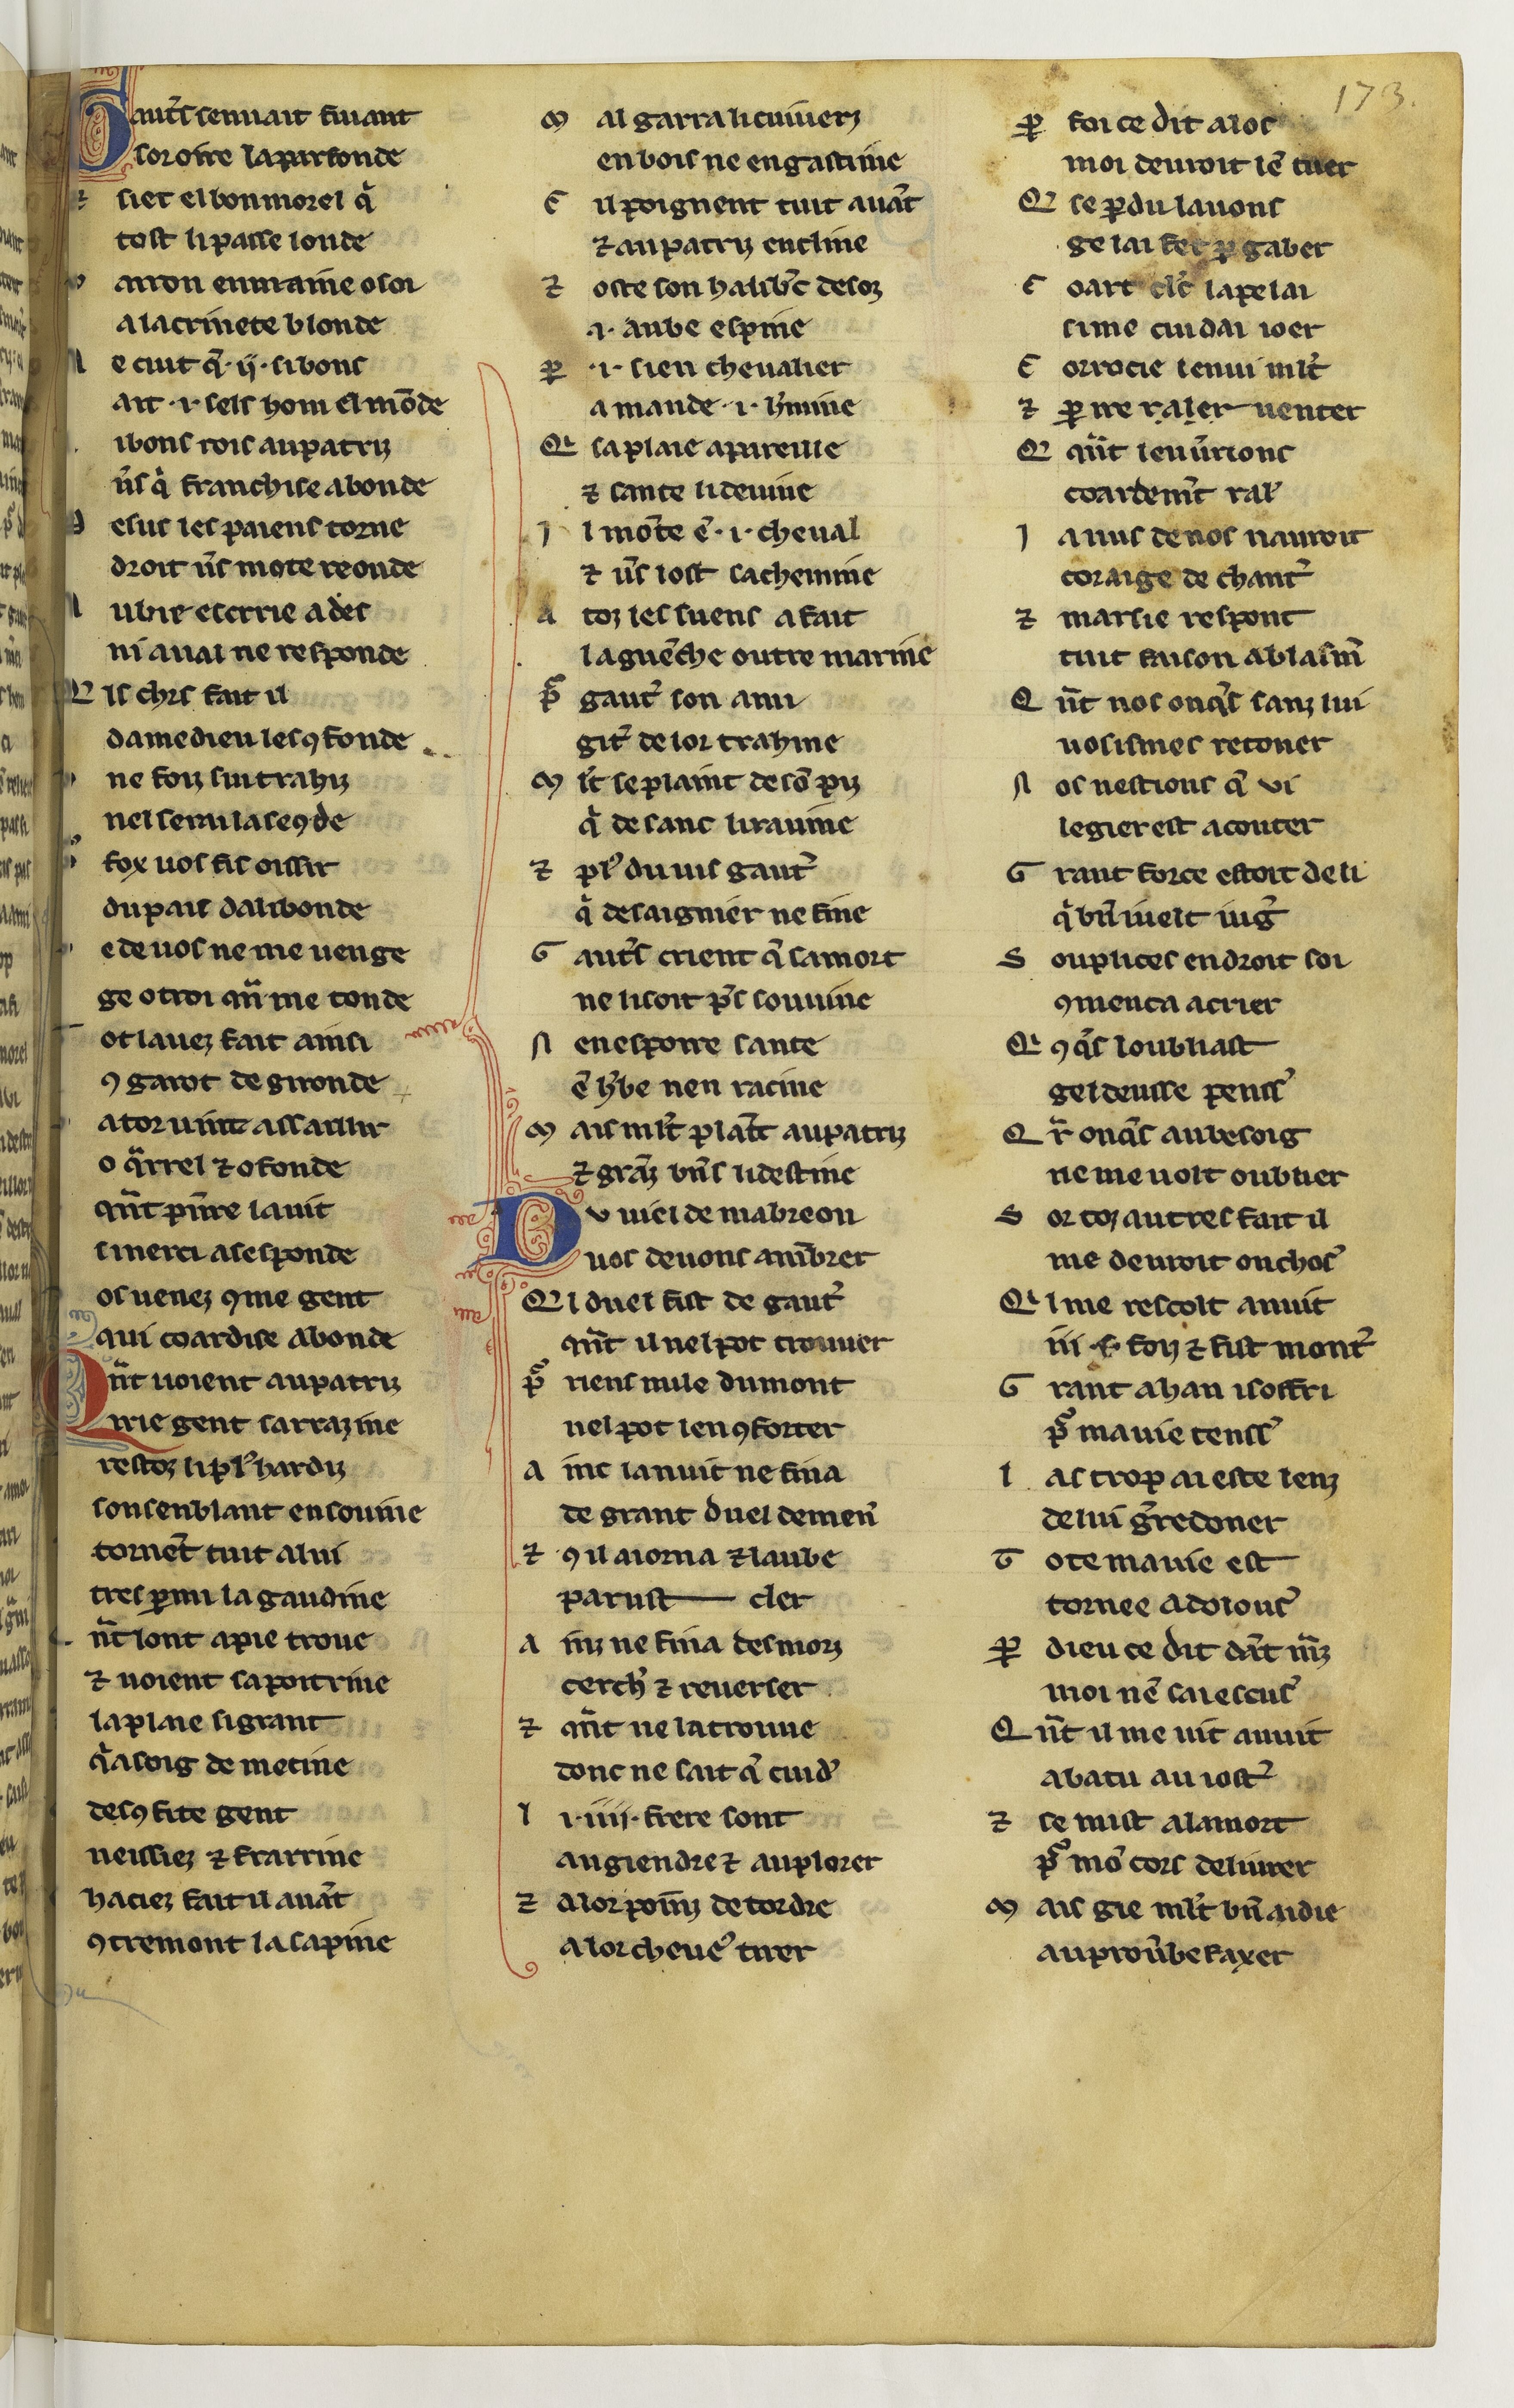 173.
Gaut̉s sen uait fuiant
sor oirre la parfonde
⁊ siet el bon morel q̉
tost li passe londe
airon enmaine o soi
a la crinete blonde
e cuit q̃ .ij. si bons
ait .i. sels hom el mõde
i bons rois aupatris
ũs q̉ franchise abonde
esus les paiens torne
droit ũs mote reonde
ubie escrrie ades
ni a uai ne responde
ls chrs fait il
damedieu les ꝯfonde
ne foiz sui trahiz
nel serai la seꝯde
fox uos fis oissir
du pais dalibonde
e de uos ne me uenge
ge otroi qm̃ me tonde
ot lauez fait ainsi
ꝯ garot de gironde
a tor uint assaillir
o q̃rrel ⁊ o fonde
qñt pim̃re lauit
s merci a sesponde
os uenez ꝯme gent
qui coardise abonde
Qñt uoient aupatris
irie gent sarrazine
restoz li pl᷒ hardiz
son senblant ensouine
tornẽt tuit a lui
tres ꝑmi la gaudine
ñt lont a pie troue
⁊ uoient sa poitrine
la plaie si grant
q̉ a soig de mecine
desꝯfite gent
neissiez ⁊ frarrine
haciez fait il auãt
ꝯtremont la sapine
M al garra li cuiuerz
en bois ne en gastine
C il poignent tuit auãt
⁊ aupatris encline
⁊ oste son haub̉c desoz
.i. aube espine
ꝑ .i. sien cheualier
a mande .i. h̉mine
Q sa plaie apareille
⁊ sante li deuine
J l mõte ẽ .i. cheual
⁊ ũs lost sachemine
A toz les suens a fait
la guẽche outre marine
p̃ gaut̉ son ami
git̉ de lor trahine
M lt̃ se plaint de sõ piz
q̉ de sanc li rauine
⁊ pl᷒ du uis gaut̉
q̉ de saignier ne fine
G aut̉s crient q̃ sa mort
ne li soit p̃s souuine
N en espoire sante
ẽ h̉be nen racine
M ais mlt̃ plaĩt aupatris
⁊ grãz bñs li destine
D u uiel de mabreon
uos deuons amẽbrer
Q l duel fist de gaut̉
qñt il nel pot trouuer
p̃ riens nule du mont
nel pot len ꝯforter
A inc la nuit ne fina
de grant duel demen̉
⁊ ꝯ il aiorna ⁊ laube
parust cler
A inz ne fina des morz
cerch̉ ⁊ reuerser
⁊ qñt ne la trouue
donc ne sait q̃ cuid̉
l i .iiij. frere sont
au giendre ⁊ au plorer
⁊ a lor poinz detordre
a lor cheue᷒ tirer
ꝑ foi ce dit a los
moi deuroit lẽ tuer
Q se ꝑdu lauons
ge lai fet ꝑ gaber
C oart lapelai
si me cuidai ioer
C orrocie len ui mlt̃
⁊ ꝑ ire raler uenter
Q qñt leu ũrions
coardemẽt ral̉
J a nus de nos nauroit
coraige de chant̉
⁊ marsie respont
tuit faison a blasm̉
Q ñt nos onq̃s sanz lui
uosismes retorner
N os nestions q̃ vi
legier est a conter
G rant force estoit de li
q̉ bñ i uelt iug̉
S ouplices endroit soi
ꝯmenca a crier
Q ꝯq̃s loubliast
gel deusse pens̉
Q r̃ onq̃s au besoig
ne me uolt oublier
S or toz autres fait il
me deuroit on chos̉
Q l me rescolt anuit
iii. foiz ⁊ fist mont̉
G rant ahan i soffri
p̃ ma uie tens̉
l as trop ai este lenz
de lui g̉redoner
T ote ma uie est
tornee a dolous̉
ꝑ dieu ce dit dãt
moi nẽ sai escus̉
Q ñt il me uit anuit
abatu au iost̉
⁊ se mist a la mort
p̃ mõ cors deliurer
M ais gie mlt̃ bñ aidie
au prouũbe faxer